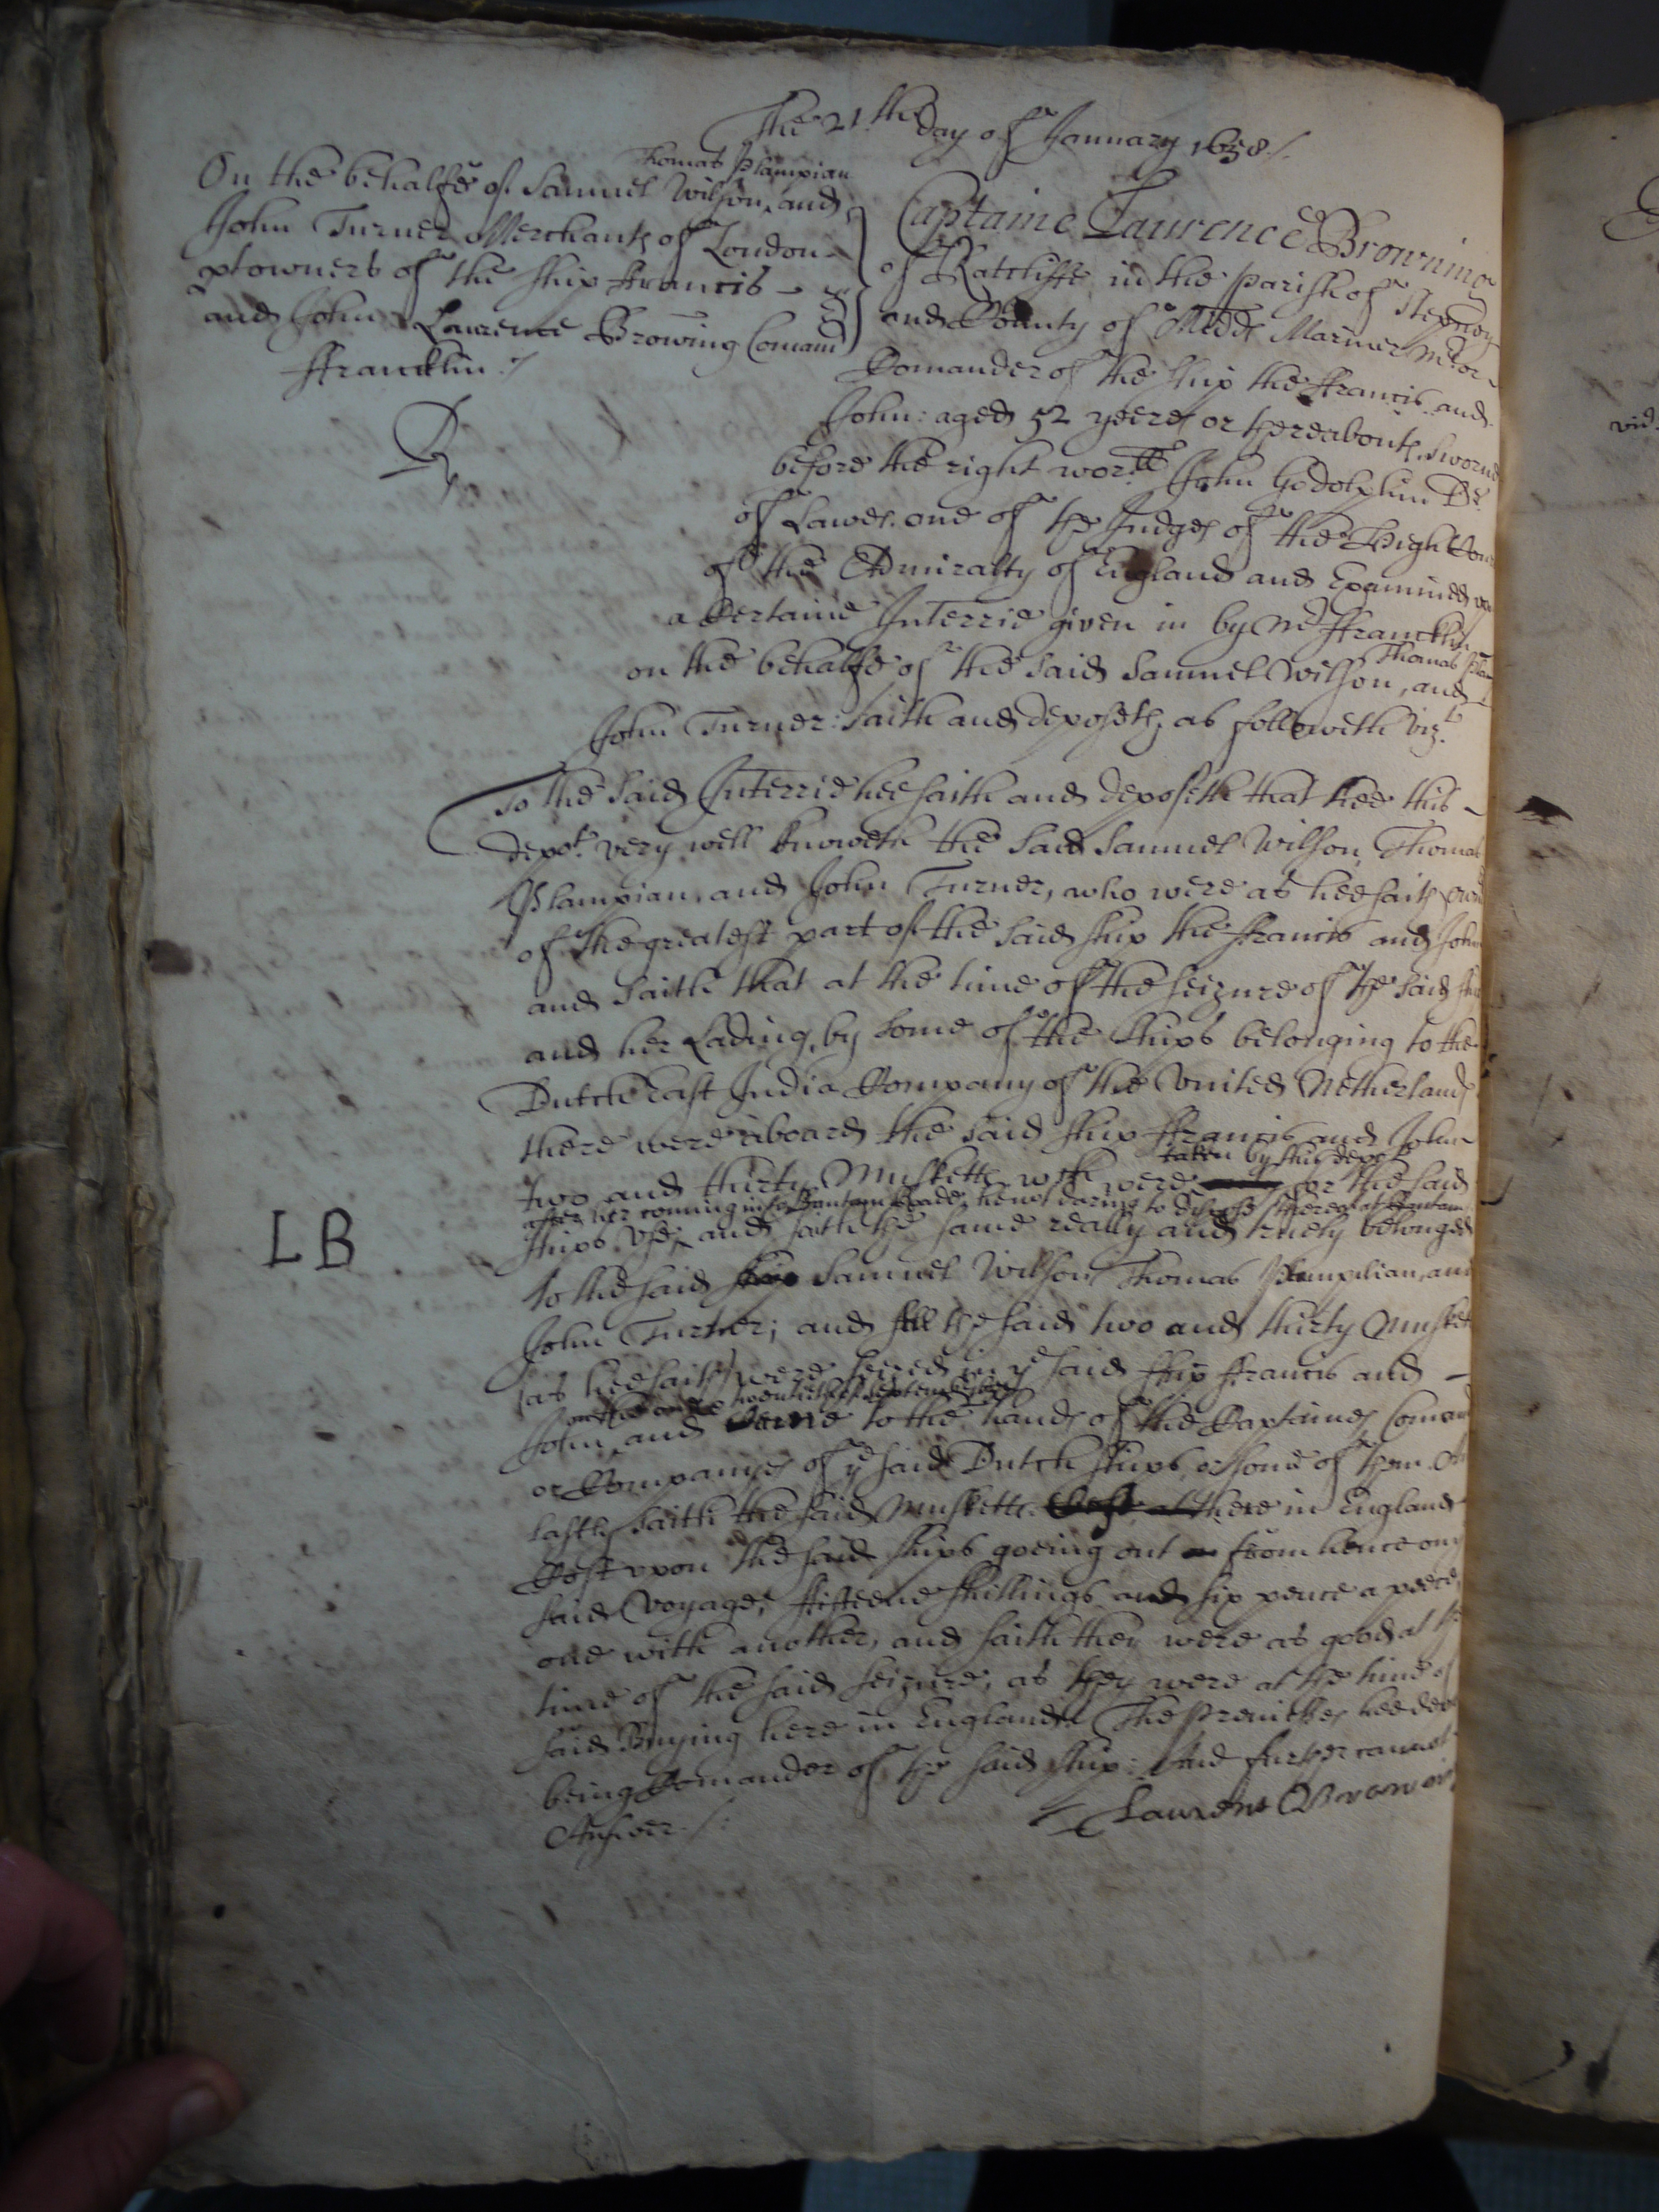 The 21.th day of January 1658./.
Thomas Plampian
On the behalfe of Samuel Wilson, and
John Turner Merchants of London
ptowners of the ship Francis -
and John Laurence Browing Comand
ffrancklin ./
Captaine Laurence Browning
of Ratcliffe in the parish of Stepney
and County of Midds Mariner
Comander of the ship the ffrancis and
John: aged 52 yeeres or thereabouts, sworne
before the right wor.ll John Godolphin Dr.
of Lawes, one of the Judges of the High Cou
of the Admiralty of England and Examined
a Certaine Interrie given in by Mr ffrancklin
Thomas Plam
on the behalfe of the said Samuel Wilson, and
John Turner: saith and deposeth, as followeth vizt.
To the said Interrie hee saith and deposeth that hee this -
depot. very well knoweth the said Samuel Wilson, Thomas
Plampian, and John Turner, who were as hee saith own
of the greatest part of the said ship the ffrancis and John
and saith that at the time of the seizure of the said
and her Lading, by some of the ships belonging to the
Dutch East India Company of the United Netherlands
there were aboard the said ship ffrancis and John
taken by this depot
two and thirty Musketts wch were for the said
after her coming into Bantam Roade, he not daring to dispose thereof at Bantam
ships use, and saith the same really and truely belonged
to the said Samuel Wilson Thomas Plampian, and
John Turner; and all the said two and thirty Muskett
(as hee saith) were seized in ye said ship ffrancis and -
on the twentieth of September
John and came to the hands of the Captaines Coman
or Companyes of ye said Dutch ships, or some of them. A
lastly saith the said Musketts here in England
Cost upon the said ships goeing out from hence on ye
said Voyage, ffifteene shillings and six pence a peece,
one with another, and saith they were as good at the
time of the said seizure, as they were at the time of
said Buying here in England. The premisses hee
being Comander of the said ship: And further cannot
Answer ./:
Laurens Brown
LB